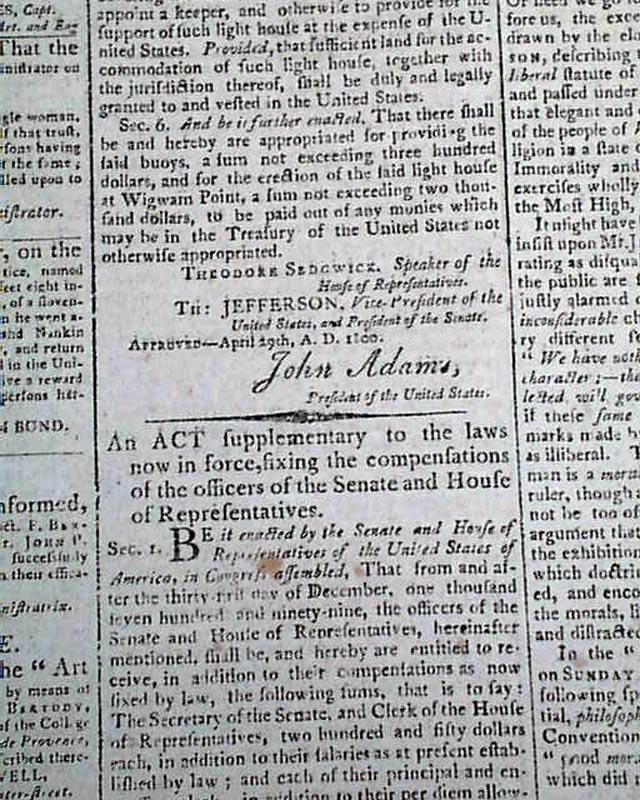 ES, Capt.
Art. and Eng
That the
ministrator on
gle woman,
lf that trust,
rsons having
f the same ;
lled upon to
istrator.
, on the
tice, named
feet eight in-
, of a seven-
n he went a-
and Mankin
, and return
l in the Uni-
ive a reward
persons har-
H BUND.
nformed,
r. JOHN P.
successfully
n their effica-
nistratrix.
E.
he “ Art
by means of
BERTODY,
of the College
de Provence,
cribed there-
WELL,
ter-street.
appoint a keeper, and otherwise to provide for the
support of such light house at the expense of the U-
nited States. Provided, that sufficient land for the ac-
commodation of such light house, together with
the jurisdiction thereof, shall be duly and legally
granted to and vested in the United States.
Sec. 6. And be it further enacted, That there shall
be and hereby are appropriated for providing the
said buoys, a sum not exceeding three hundred
dollars, and for the erection of the said light house
at Wigwam Point, a sum not exceeding two thou-
sand dollars, to be paid out of any monies which
may be in the Treasury of the United States not
otherwise appropriated.
THEODORE SEDGWICK, Speaker of the
House of Representatives.
TH: JEFFERSON, Vice-President of the
United States, and President of the Senate.
APPROVED—April 29th, A. D. 1800.
John Adams,
President of the United States.
An ACT supplementary to the laws
now in force, fixing the compensations
of the officers of the Senate and House
of Representatives.
Sec. 1. BE it enacted by the Senate and House of
Representatives of the United States of
America, in Congress assembled, That from and af-
ter the thirty-first day of December, one thousand
seven hundred and ninety-nine, the officers of the
Senate and House of Representatives, hereinafter
mentioned, shall be, and hereby are entitled to re-
ceive, in addition to their compensations as now
fixed by law, the following sums, that is to say:
The Secretary of the Senate, and Clerk of the House
of Representatives, two hundred and fifty dollars
each, in addition to their salaries as at present estab-
lished by law ; and each of their principal and en-
in addition to their per diem allow-
fore us, the exce
drawn by the ele
SON, describing t
liberal statute of
and passed under
that elegant and
of the people of
ligion is a state o
Immorality and
exercises wholly
the Most High,
It might have
insist upon Mr. J
rating as disqua
the public are
justly alarmed
inconsiderable ch
ry different se
“ We have noth
character ;—the
lected, will gov
if these same
marks made b
as illiberal. T
man is a mora
ruler, though
not be too of
argument that
the exhibition
which doctri
ed, and enco
the morals, li
and distracte
In the “
on SUNDAY
following sp
tial, philosoph
Convention
“ good mora
which did